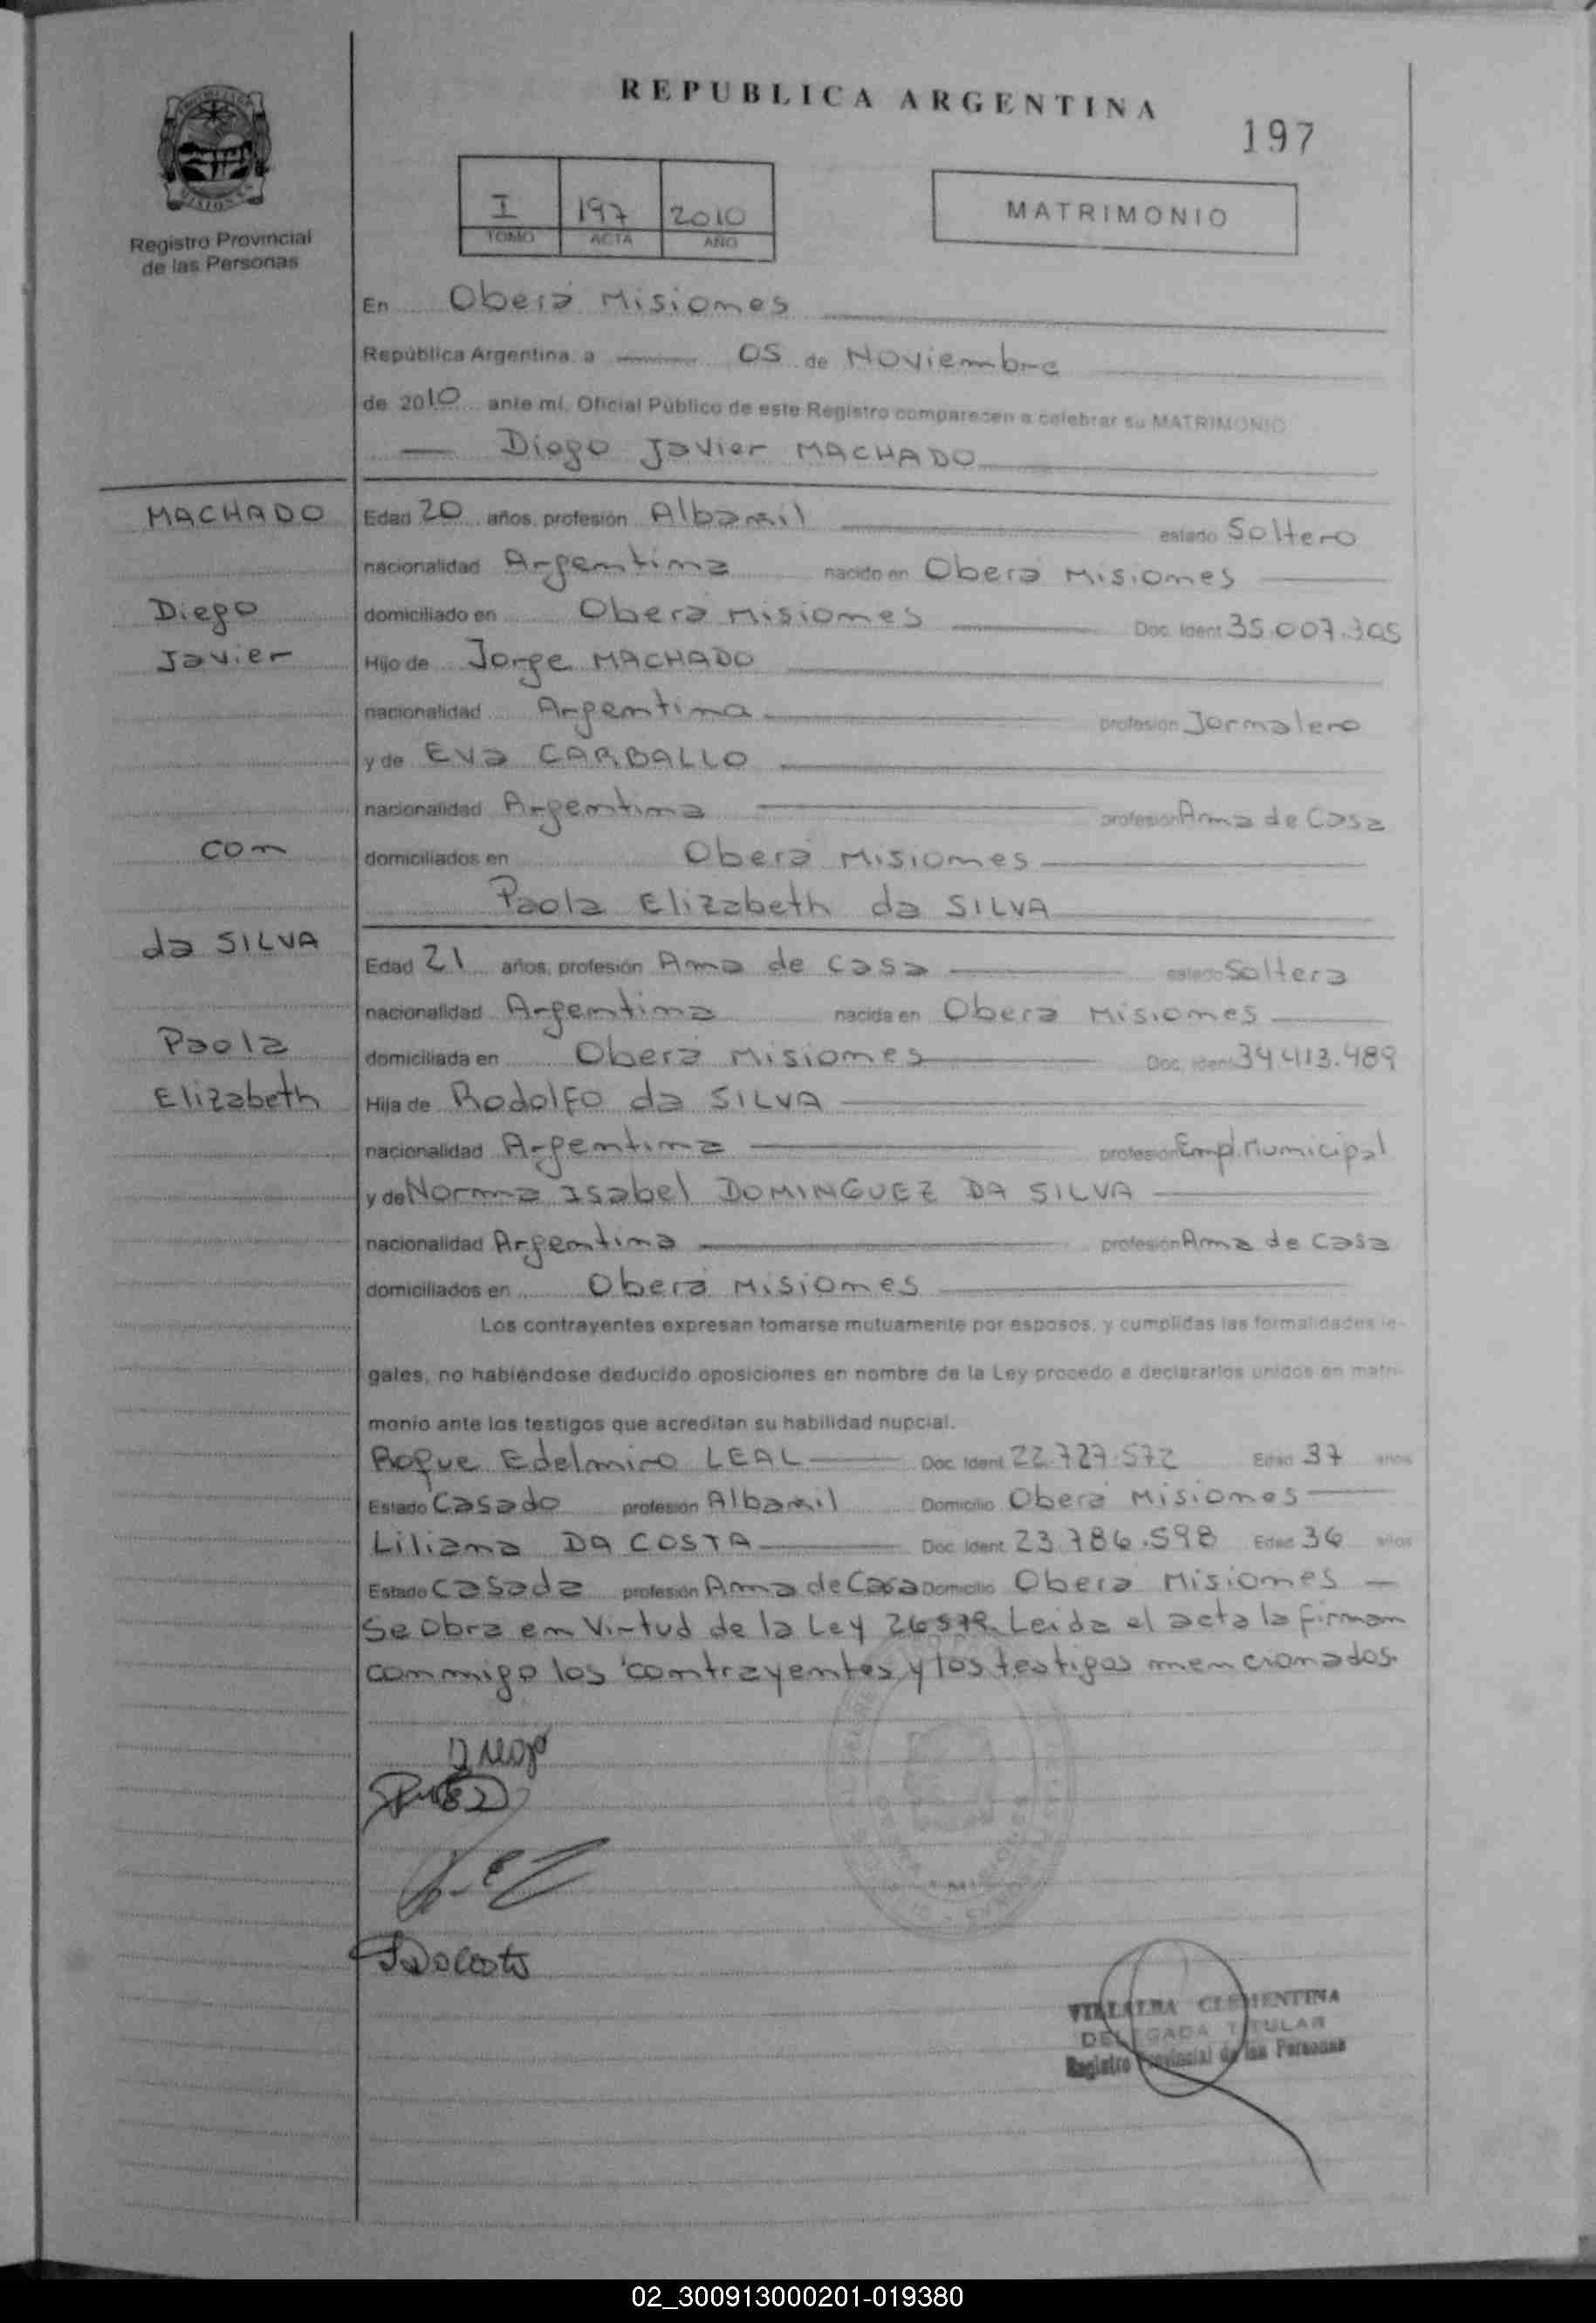 REPUBLICA ARGENTINA
197
Registro Provincial
de las Personas
I 197 2010
TOMO ACTA AÑO
MATRIMONIO
En Oberá Misiones
República Argentina, a 05 de Noviembre
de 2010 ante mí, Oficial Público de este Registro comparecen a celebrar su MATRIMONIO
Diego Javier MACHADO
MACHADO
Edad 20 años, profesión Albañil estado Soltero
nacionalidad Argentina nacido en Oberá Misiones
Diego
domiciliado en Oberá Misiones Doc. Ident 35.007.305
Javier
Hijo de Jorge MACHADO
nacionalidad Argentina profesión Jornalero
y de Eva CARBALLO
nacionalidad Argentina profesión Ama de Casa
con
domiciliados en Oberá Misiones
Paola Elizabeth da SILVA
da SILVA
Edad 21 años, profesión Ama de casa estado Soltera
nacionalidad Argentina nacida en Oberá Misiones
Paola
domiciliada en Oberá Misiones Doc. Ident 34.413.489
Elizabeth
Hija de Rodolfo da SILVA
nacionalidad Argentina profesión Empl. Municipal
y de Norma Isabel DOMINGUEZ DA SILVA
nacionalidad Argentina profesión Ama de Casa
domiciliados en Oberá Misiones
Los contrayentes expresan tomarse mutuamente por esposos, y cumplidas las formalidades le-
gales, no habiéndose deducido oposiciones en nombre de la Ley procedo a declararlos unidos en matri-
monio ante los testigos que acreditan su habilidad nupcial.
Roque Edelmiro LEAL Doc. Ident 22.727.572 Edad 37 años
Estado Casado profesión Albañil Domicilio Oberá Misiones
Liliana DA COSTA Doc. Ident 23.786.598 Edad 36 años
Estado Casada profesión Ama de Casa Domicilio Oberá Misiones
Se Obra en Virtud de la Ley 26579. Leida el acta la firman
conmigo los contrayentes y los testigos mencionados.
VILLALBA CLEMENTINA
DELEGADA TITULAR
Registro Provincial de las Personas
02_300913000201-019380